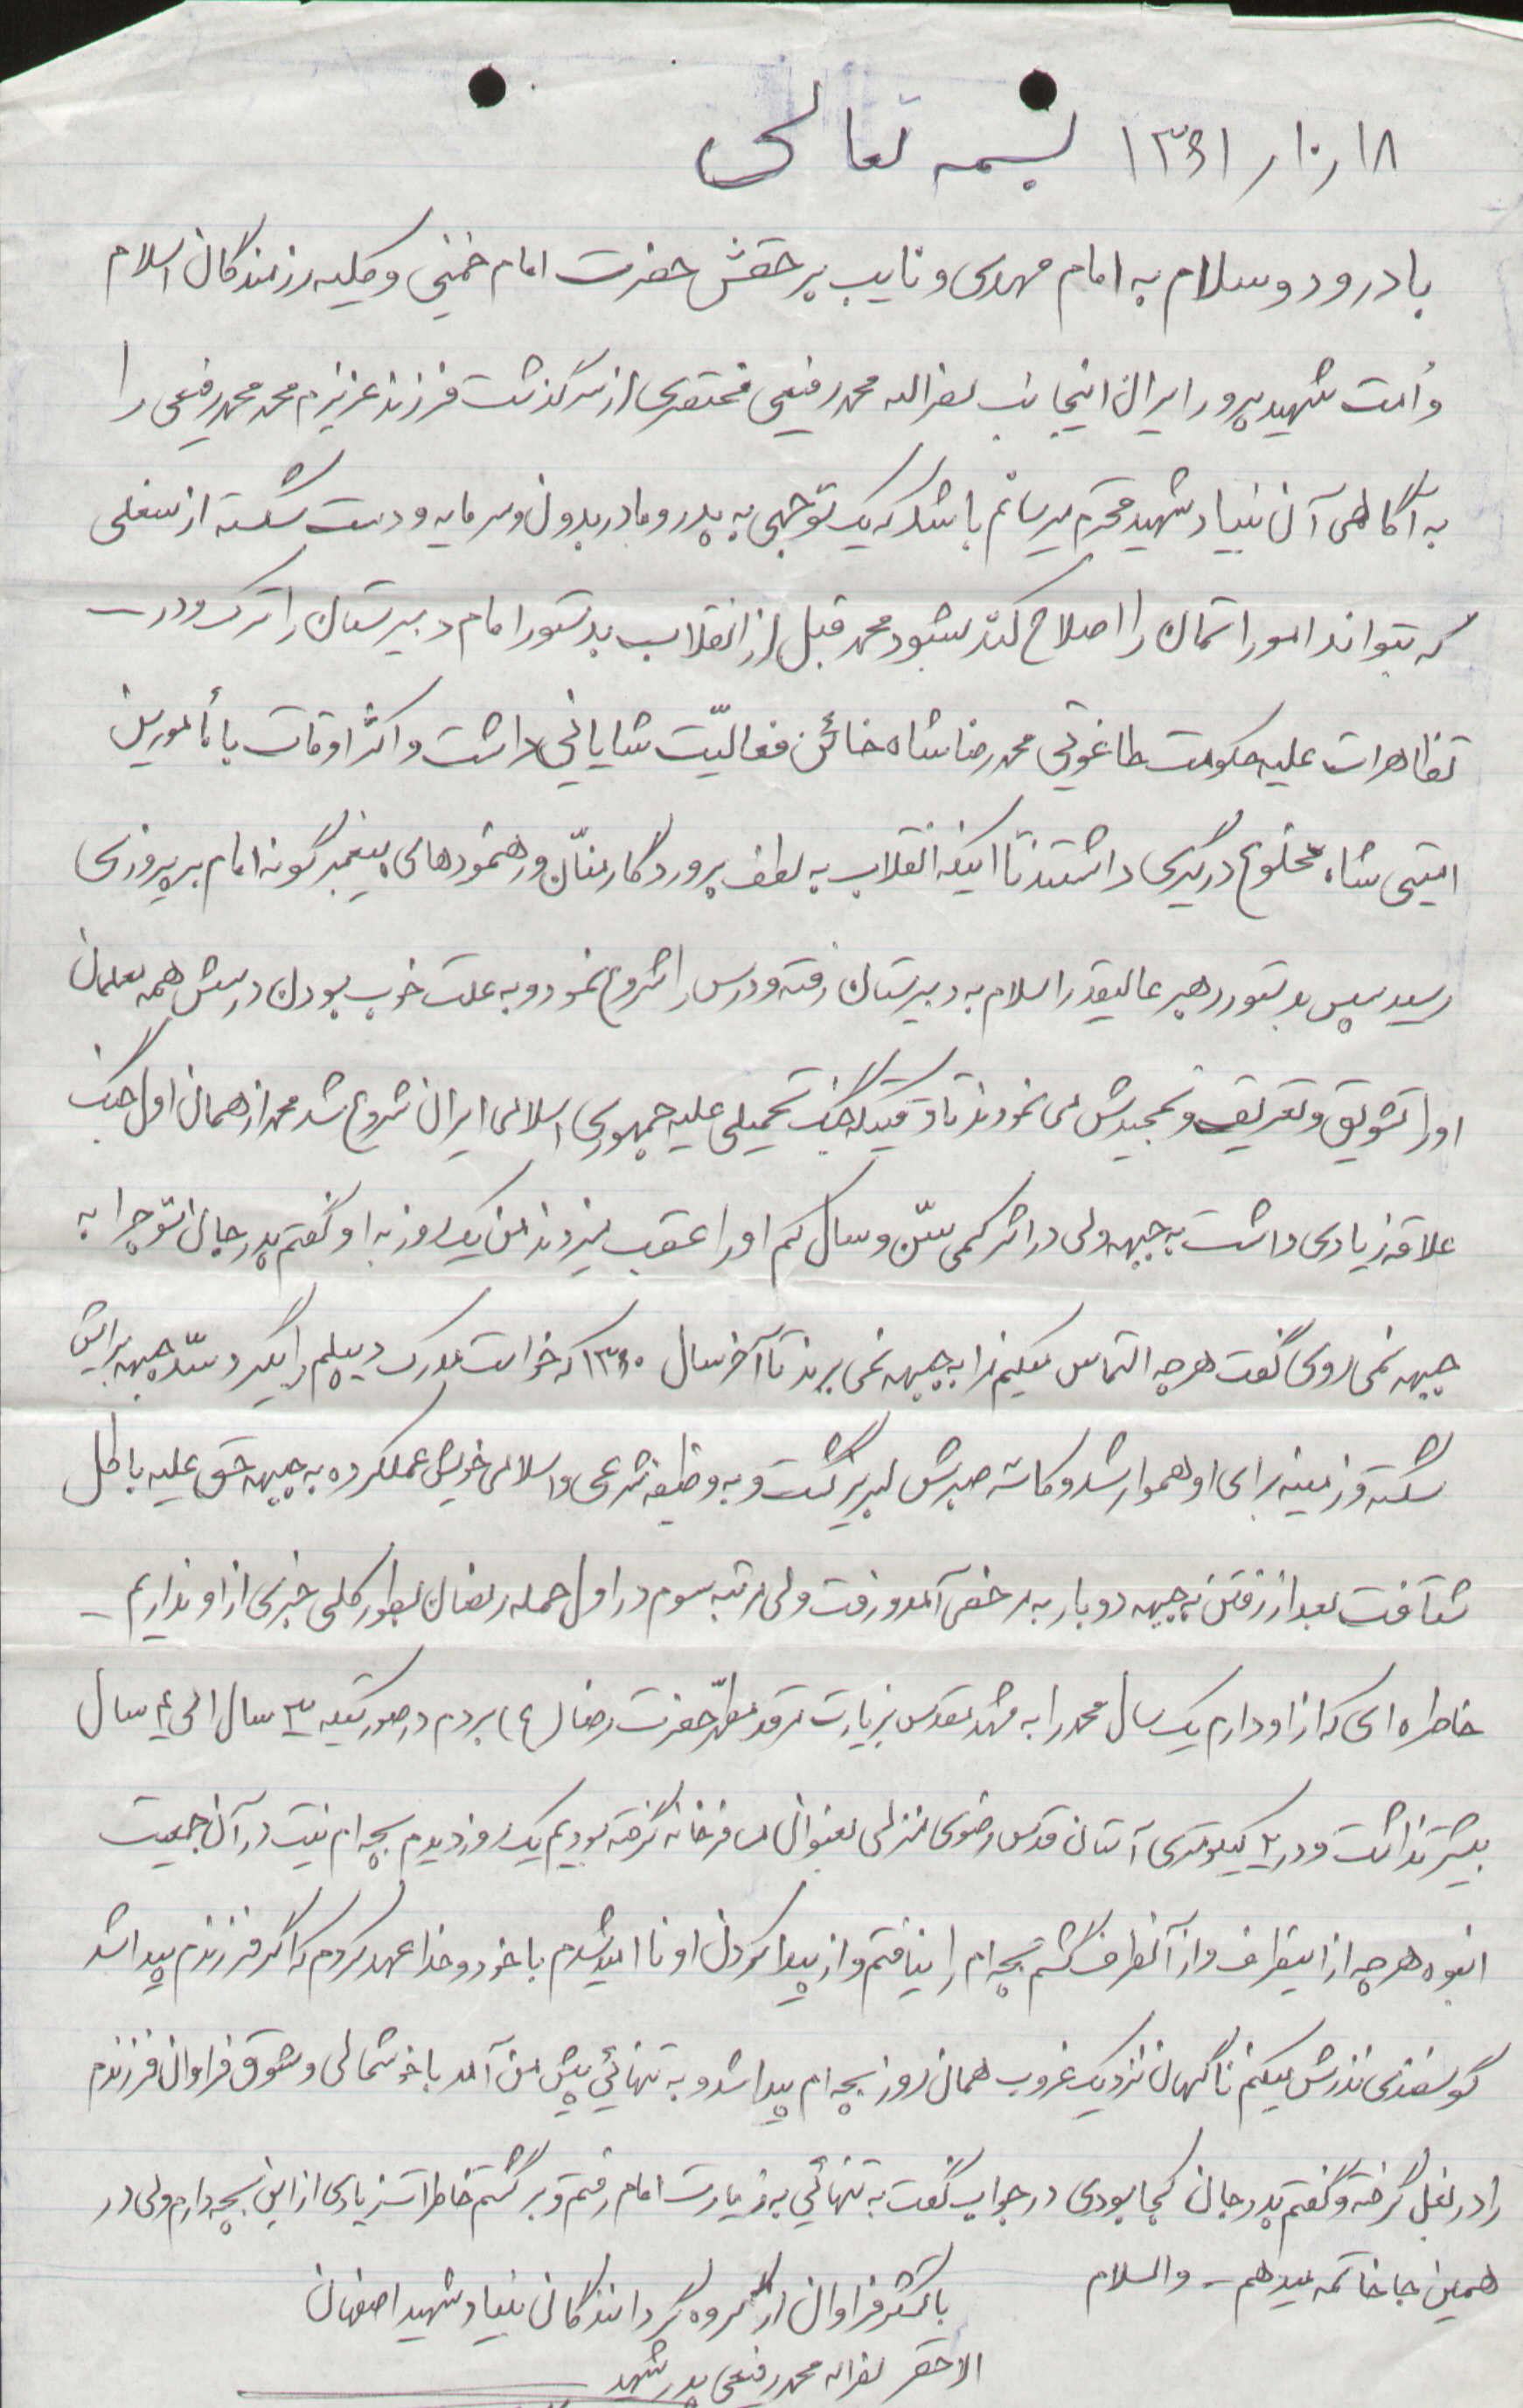 ۱۸ ر ۱۰ ر ۱۳۶۱ بسمه تعالی
با درود و سلام به امام مهدی و نایب بر حقش حضرت امام خمینی و کلیه رزمندگان اسلام
و اُمت شهید پرور ایران اینجانب نصراله محمد رفیعی مختصری از سرگذشت فرزند عزیزم محمد محمد رفیعی را
به آگاهی آن بنیاد شهید محترم میرسانم باشد که یک توجهی به پدر و مادر بدون و سرمایه و دست شکسته از شغلی
که بتواند امور اتمان را اصلاح کند بشود محمد قبل از انقلاب بدستور امام دبیرستان را ترک و در –
تظاهرات علیه حکومت طاغوتی محمد رضا شاه خائن فعالیّت شایانی داشت و اکثر اوقات با مأمورین
امنیتی شاه مخلوع درگیری داشتند تا اینکه انقلاب به لطف پروردگار منّان و رهنمودهای پیغمبر گونه امام بر پیروزی
رسید سپس بدستور رهبر عالیقدر اسلام به دبیرستان رفته و درس را شروع نمود و به علت خوب بودن درسش همه معلمان
او را تشویق و تعریف و تمجیدش می نمودند تا وقتیکه جنگ تحمیلی علیه جمهوری اسلامی ایران شروع شد محمد از همان اول جنگ
علاقه زیادی داشت به جبهه ولی در اثر کمی سنّ و سال کم او را عقب میزدند من یک روز به او گفتم پدر جان تو چرا به
جبهه نمی روی گفت هر چه التماس میکنم مرا به جبهه نمی برند تا آخر سال ۱۳۶۰ که خواست مدرک دیپلم را بگیرد سدّ جبهه برایش
شکسته و زمینه برای او هموار شد و کاسه صبرش لبریز گشت و به وظیفه شرعی و اسلامی خویش عمل کرده به جبهه حق علیه باطل
شتافت بعد از رفتن به جبهه دو بار به مرخصی آمد و رفت ولی مرتبه سوم در اول حمله رمضان بطور کلی خبری از او نداریم –
خاطره ای که از او دارم یک سال محمد را به مشهد مقدس بزیارت مرقد مطهّر حضرت رضا (ع) بردم در صورتیکه ۳ سال الی ۴ سال
بیشتر نداشت و در ۲ کیلومتری آستان قدس رضوی منزلی بعنوان مسافرخانه گرفته بودیم یک روز دیدم بچه ام نیست در آن جمعیت
انبوه هر چه از اینطرف و از آنطرف گشتم بچه ام را نیافتم و از پیدا کردن او نا امید شدم با خود و خدا عهد کردم که اگر فرزندم پیدا شد
گوسفندی نذرش میکنم ناگهان نزدیک غروب همان روز بچه ام پیدا شد و به تنهائی پیش من آمد با خوشحالی و شوق فراوان فرزندم
را در بغل گرفته و گفتم پدر جان کجا بودی در جواب گفت به تنهائی به زیارت امام رفتم و برگشتم خاطرات زیادی از این بچه دارم ولی در
همین جا خاتمه میدهم – والسلام
با تشکر فراوان از گروه گردانندگان بنیاد شهید اصفهان
الاحقر نصراله محمد رفیعی پدر شهید